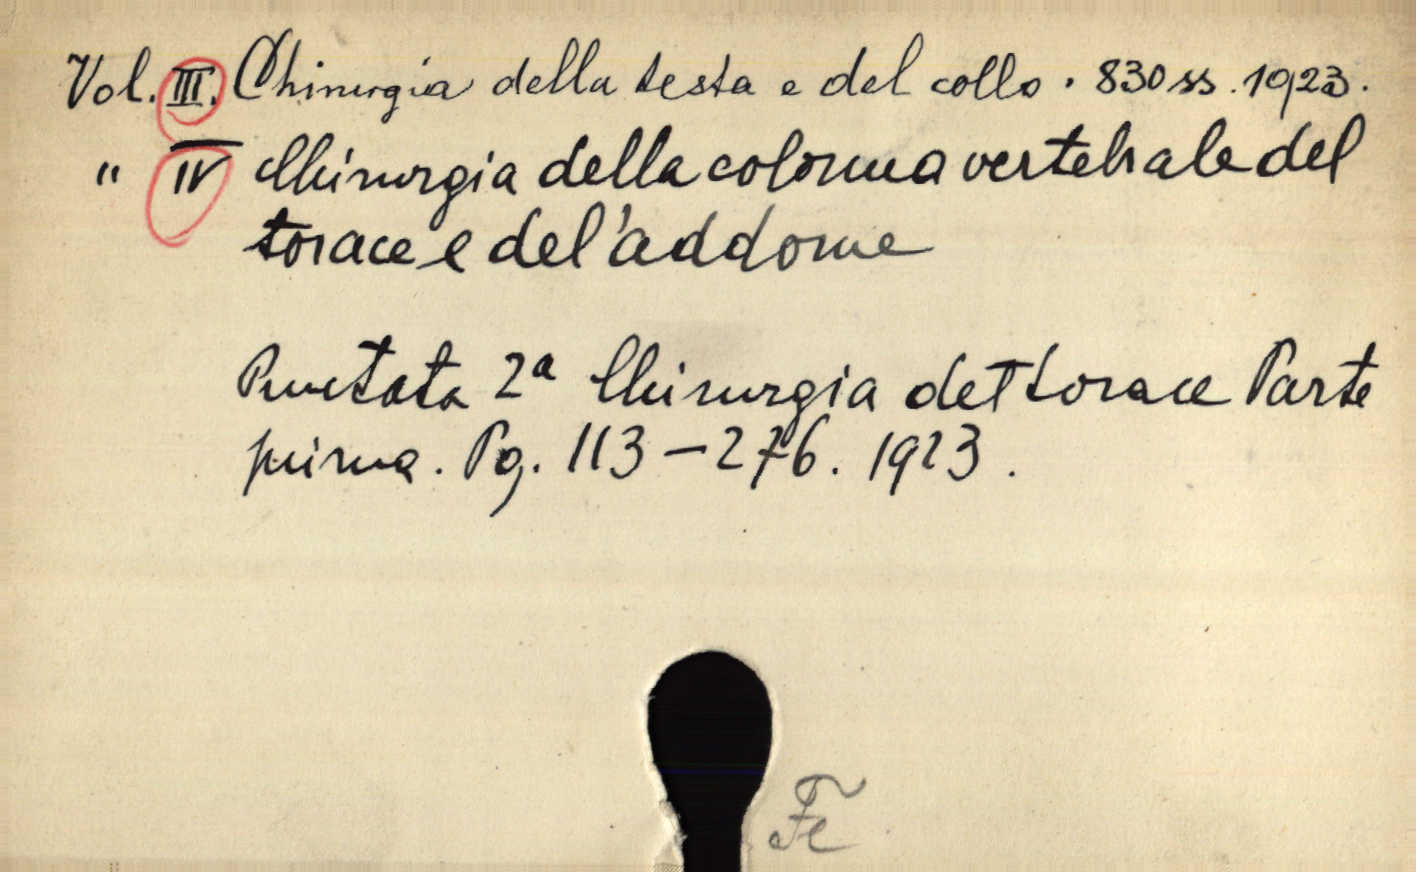 Vol. III. Chirurgia della testa e del collo. 830 ss. 1923.
" IV Chirurgia della colonna vertebrale del
torace e del'addome
Puntata 2ª Chirurgia del torace Parte
prima. Pg. 113-276. 1923.
Fe